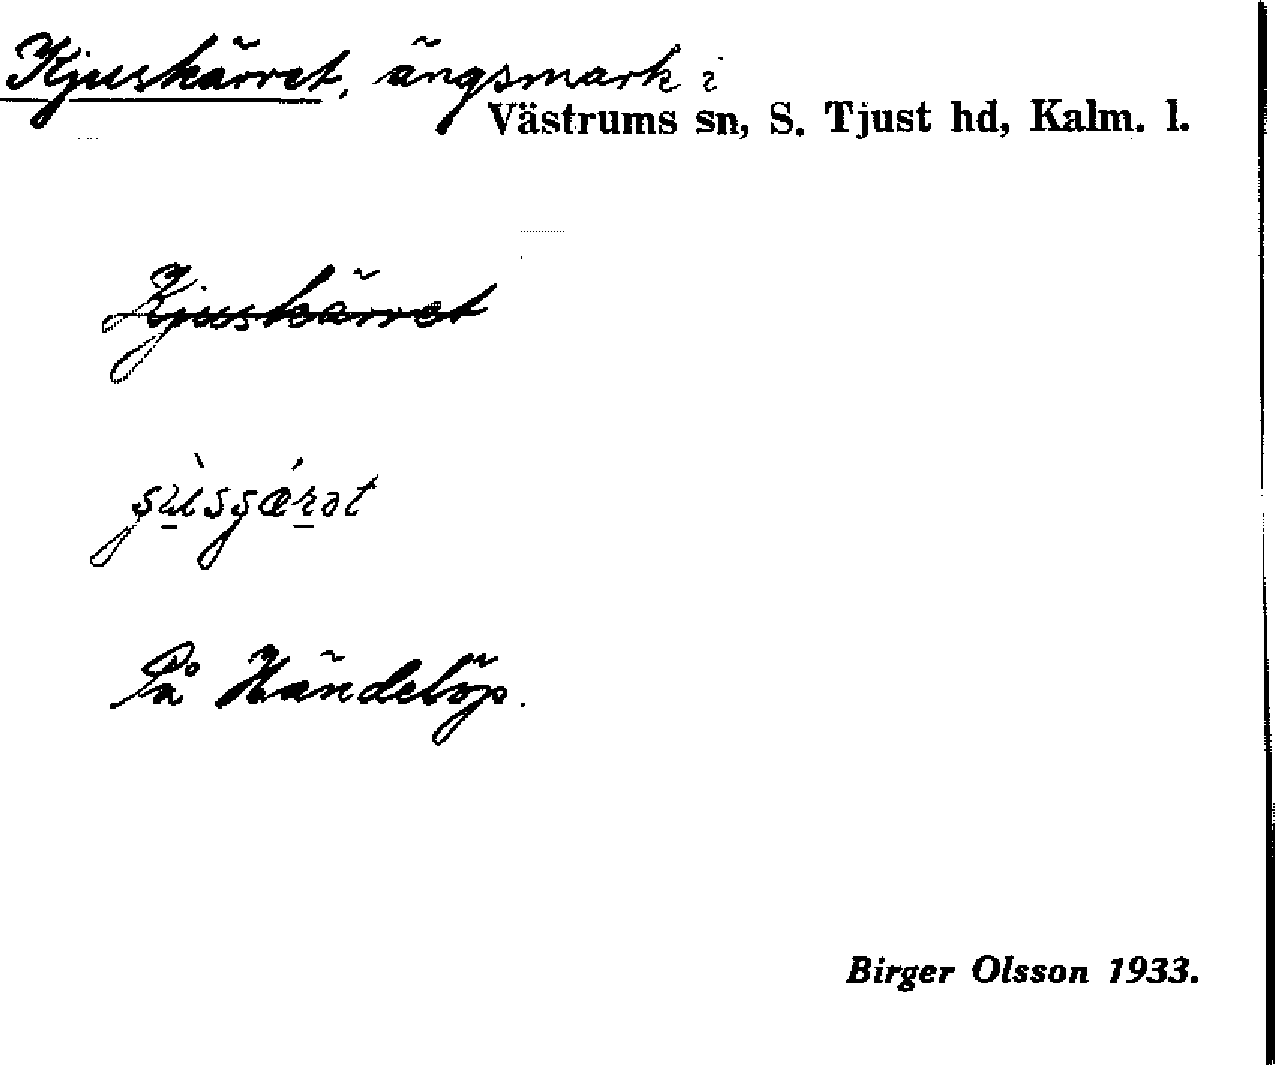 Kjuskärret, ängsmark i
Västrums sn, S. Tjust hd, Kalm. l.
Kjuskärret
På Händelöp.
Birger Olsson 1933.